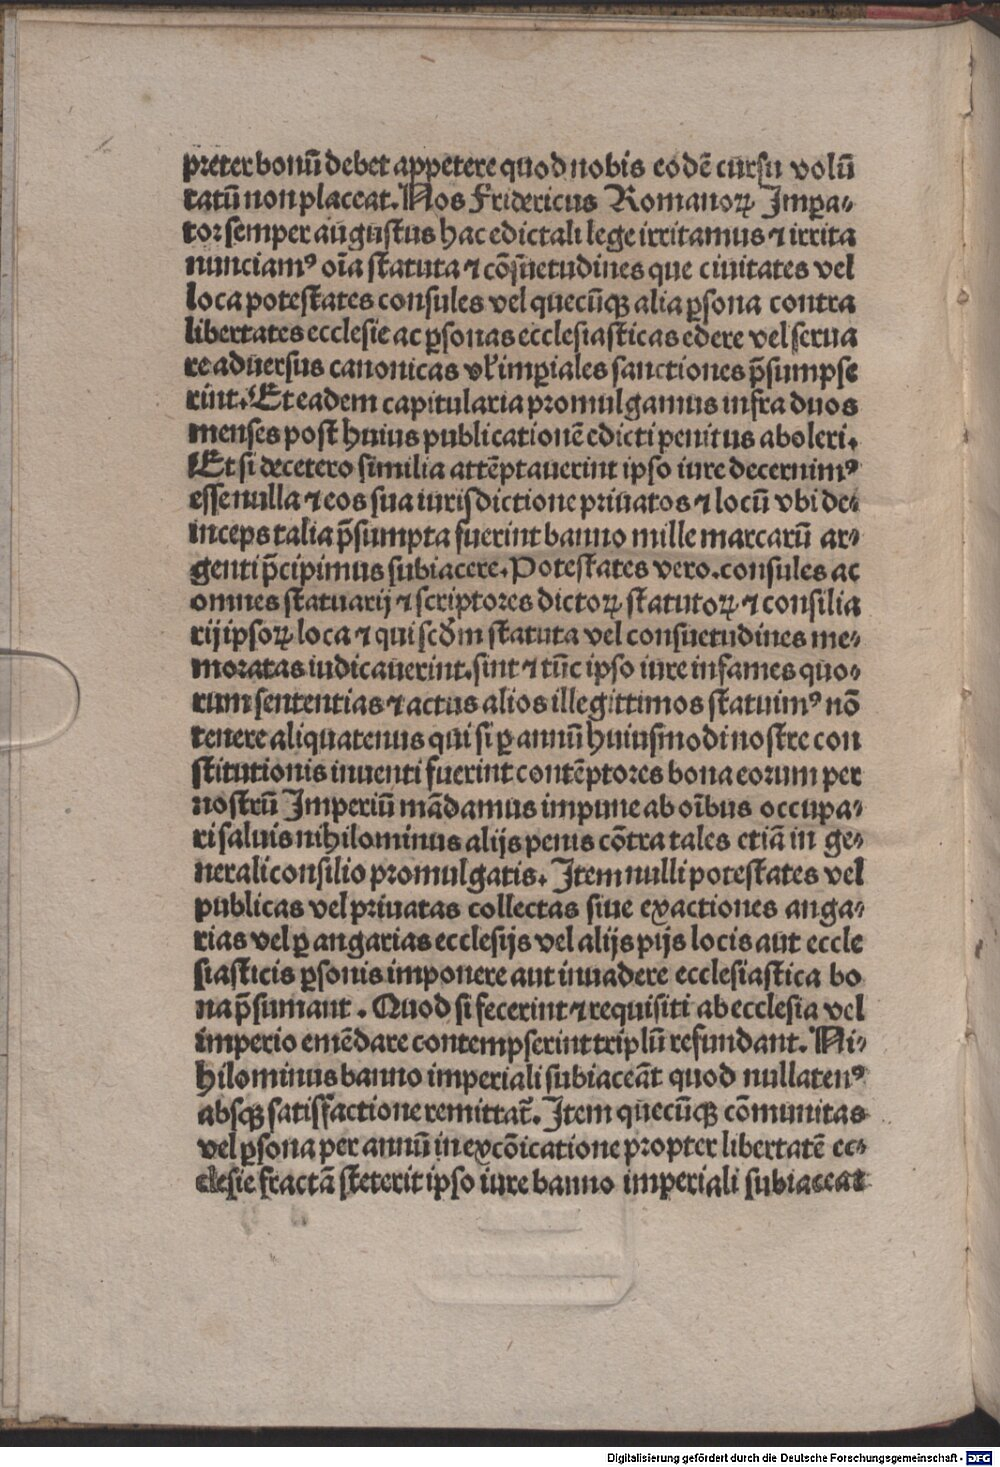 preter bonū debet appetere quod nobis eodē cursu volū
tatū non placeat. Nos Fridericus Romanoꝝ Impa⸗
tor semper augustus hac edictali lege irritamus ⁊ irrita
nunciamꝰ oīa statuta ⁊ cōsuetudines que ciuitates vel
loca potestates consules vel quecūqꝫ alia ꝑsona contra
libertates ecclesie ac ꝑsonas ecclesiasticas edere vel serua
re aduersus canonicas vl̓ imꝑiales sanctiones p̄sumpse
rint. Et eadem capitularia promulgamus infra duos
menses post huius publicationē edicti penitus aboleri.
Et si decetero similia attēptauerint ipso iure decernimꝰ
esse nulla ⁊ eos sua iurisdictione priuatos ⁊ locū vbi de⸗
inceps talia p̄sumpta fuerint banno mille marcarū ar⸗
genti p̄cipimus subiacere. Potestates vero. consules ac
omnes statuarij ⁊ scriptores dictoꝝ statutoꝝ ⁊ consilia
rij ipsoꝝ loca ⁊ qui scd̄m statuta vel consuetudines me⸗
moratas iudicauerint. sint ⁊ tūc ipso iure infames quo⸗
rum sententias ⁊ actus alios illegittimos statuimꝰ nō
tenere aliquatenus qui si ꝑ annū huiusmodi nostre con
stitutionis inuenti fuerint contēptores bona eorum per
nostrū Imperiū mādamus impune ab oībus occupa⸗
ri saluis nihilominus alijs penis cōtra tales etiā in ge⸗
nerali consilio promulgatis. Item nulli potestates vel
publicas vel priuatas collectas siue exactiones anga⸗
rias vel ꝑ angarias ecclesijs vel alijs pijs locis aut eccle
siasticis ꝑsonis imponere aut inuadere ecclesiastica bo
na p̄sumant . Quod si fecerint ⁊ requisiti ab ecclesia vel
imperio emēdare contempserint triplū refundant. Ni⸗
hilominus banno imperiali subiaceāt quod nullatenꝰ
absqꝫ satisfactione remittat̄. Item quecūqꝫ cōmunitas
vel ꝑsona per annū in excōicatione propter libertatē ec⸗
clesie fractā steterit ipso iure banno imperiali subiaceat
Digitalisierung gefördert durch die Deutsche Forschungsgemeinschaft - DFG